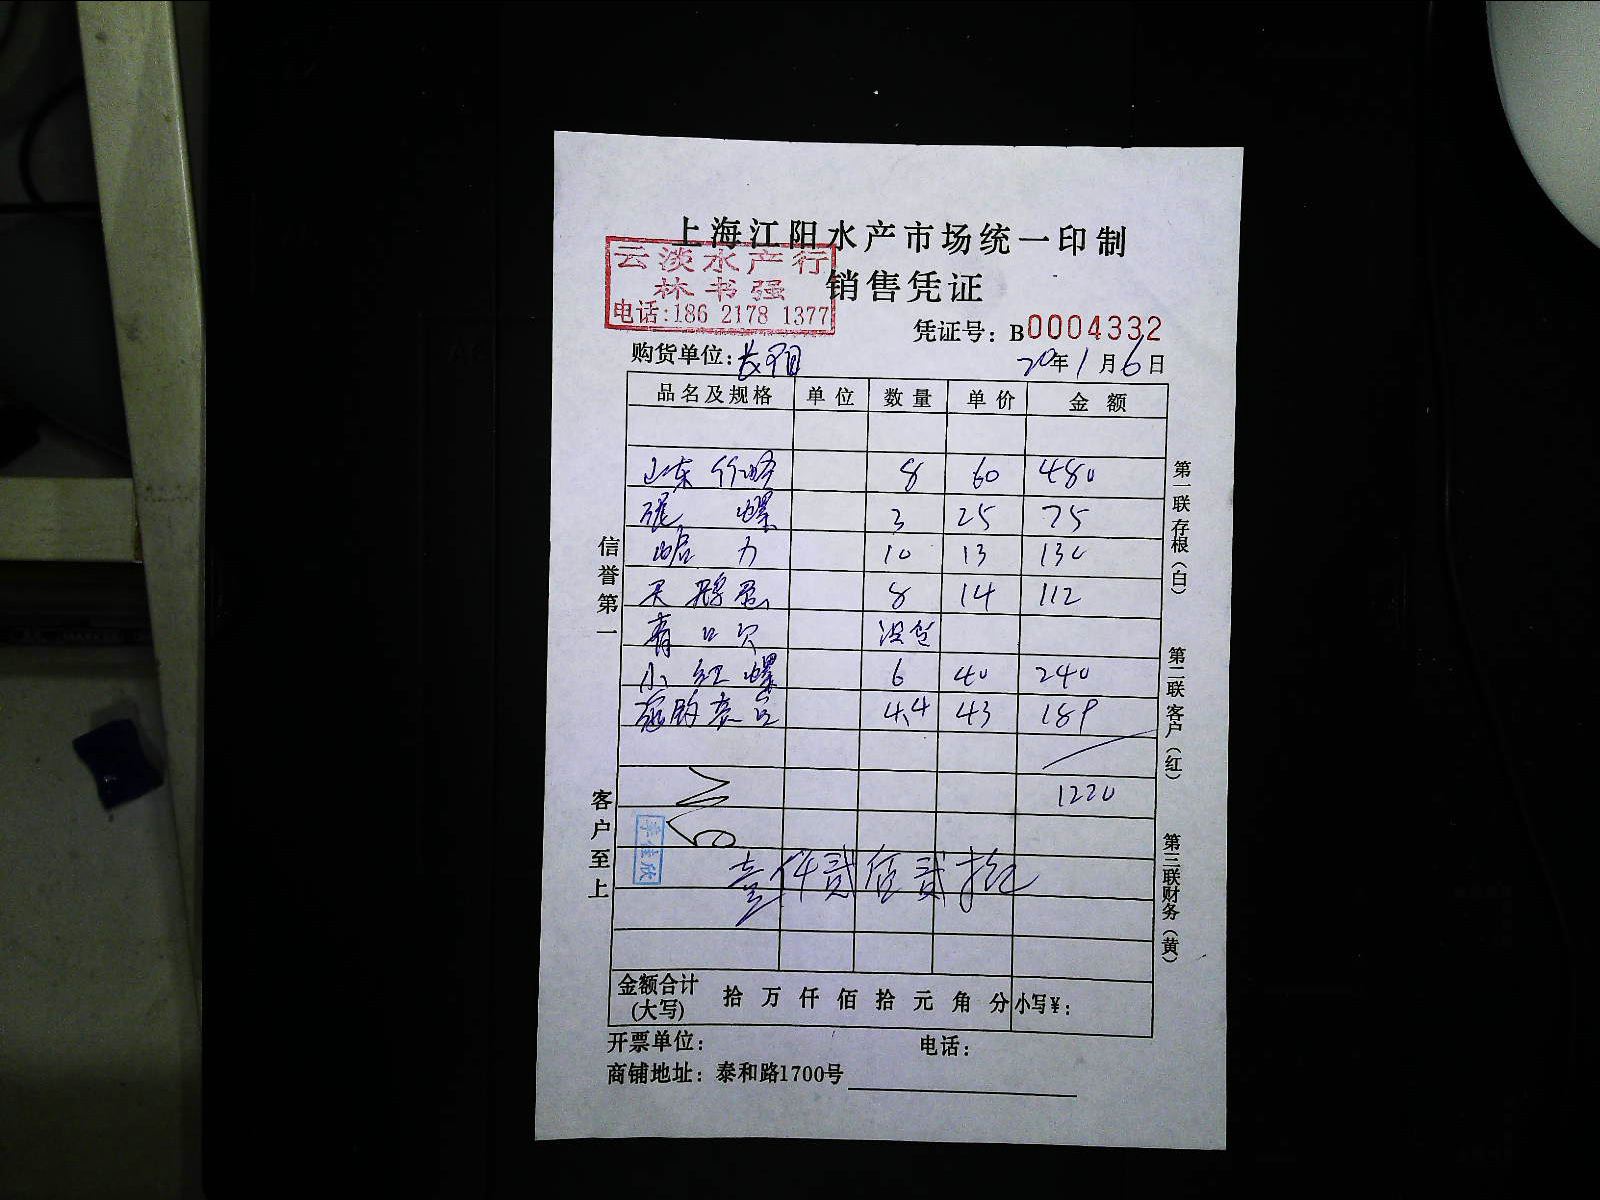 上海江阳水产市场统一印制
云淡水产行
林书强
电话:186 2178 1377
销售凭证
凭证号：B0004332
购货单位：长阳
20年1月6日
品名及规格 单位 数量 单价 金额
山东竹蛏 8 60 480
泥螺 3 25 75
蛤力 10 13 130
天鹅蛋 8 14 112
青口贝 没货
小红螺 6 40 240
4.4 43 189
1220
李佳欣
壹仟贰佰贰拾元
金额合计(大写) 拾 万 仟 佰 拾 元 角 分 小写¥：
开票单位： 电话：
商铺地址：泰和路1700号
信誉第一
客户至上
第一联存根(白)
第二联客户(红)
第三联财务(黄)